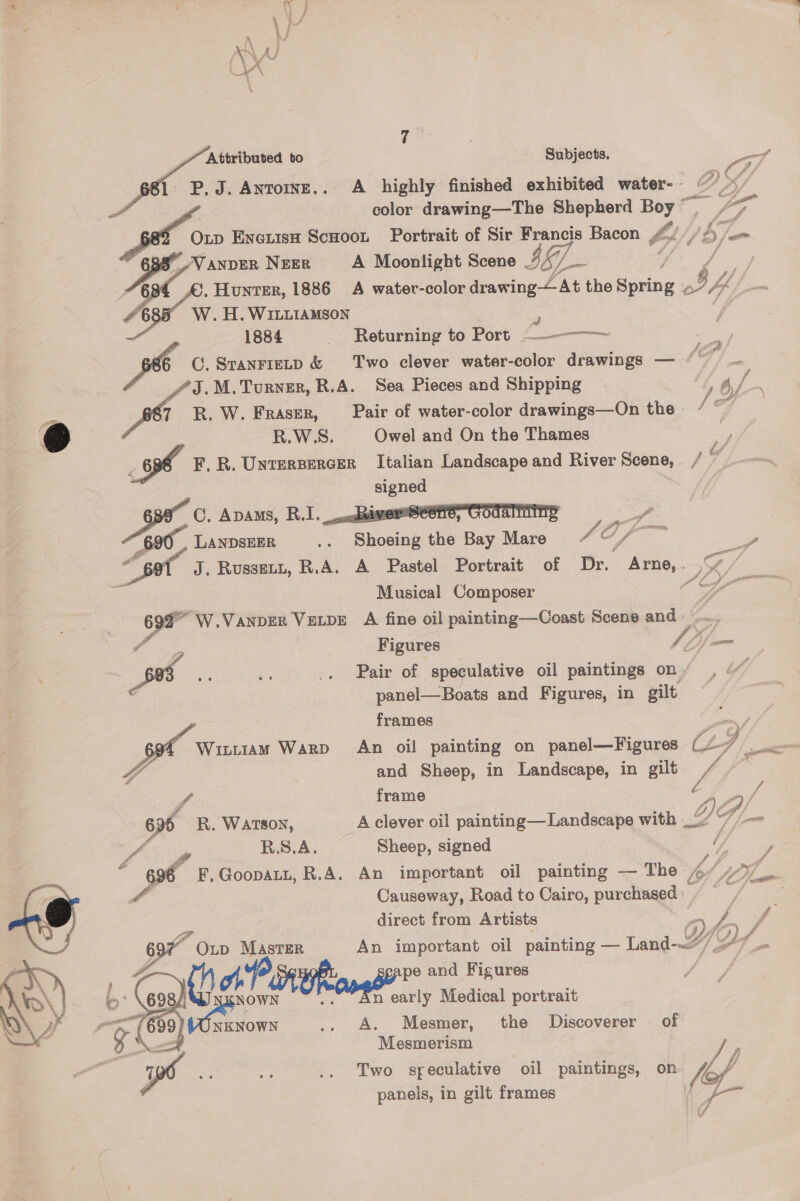 7
Attributed to Subjects.
681 P. J. ANTOINE.. A highly finished exhibited water-
color drawing—The Shepherd Boy
682 OLD ENGLISH SCHOOL Portrait of Sir Francis Bacon
683 VANDER NEER A Moonlight Scene
684 C. HUNTER, 1886 A water-color drawing—At the Spring
685 W. H. WILLIAMSON
1884 Returning to Port
686 C. STANFIELD & Two clever water-color drawings —
J. M. TURNER, R.A. Sea Pieces and Shipping
687 R. W. FRASER, Pair of water-color drawings—On the
R.W.S. Owel and On the Thames
688 F. R. UNTERBERGER Italian Landscape and River Scene,
signed
689 C. ADAMS, R.I. River Scene, Godalming
690 LANDSEER .. Shoeing the Bay Mare
691 J. RUSSELL, R.A. A Pastel Portrait of Dr. Arne,
Musical Composer
692 W. VANDER VELDE A fine oil painting—Coast Scene and
Figures
693 .. .. .. Pair of speculative oil paintings on
panel—Boats and Figures, in gilt
frames
694 WILLIAM WARD An oil painting on panel—Figures
and Sheep, in Landscape, in gilt
frame
695 R. WATSON, A clever oil painting—Landscape with
R.S.A. Sheep, signed
696 F. GOODALL, R.A. An important oil painting — The
Causeway, Road to Cairo, purchased
direct from Artists
697 OLD MASTER An important oil painting — Land-
scape and Figures
698 UNKNOWN .. An early Medical portrait
699 UNKNOWN .. A. Mesmer, the Discoverer of
Mesmerism
700 .. .. .. Two speculative oil paintings, on
panels, in gilt frames